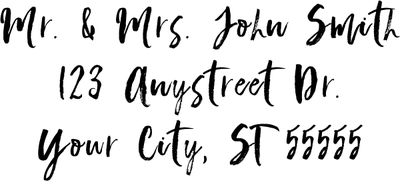 Mr. & Mrs. John Smith
123 Anystreet Dr.
Your City, ST 55555